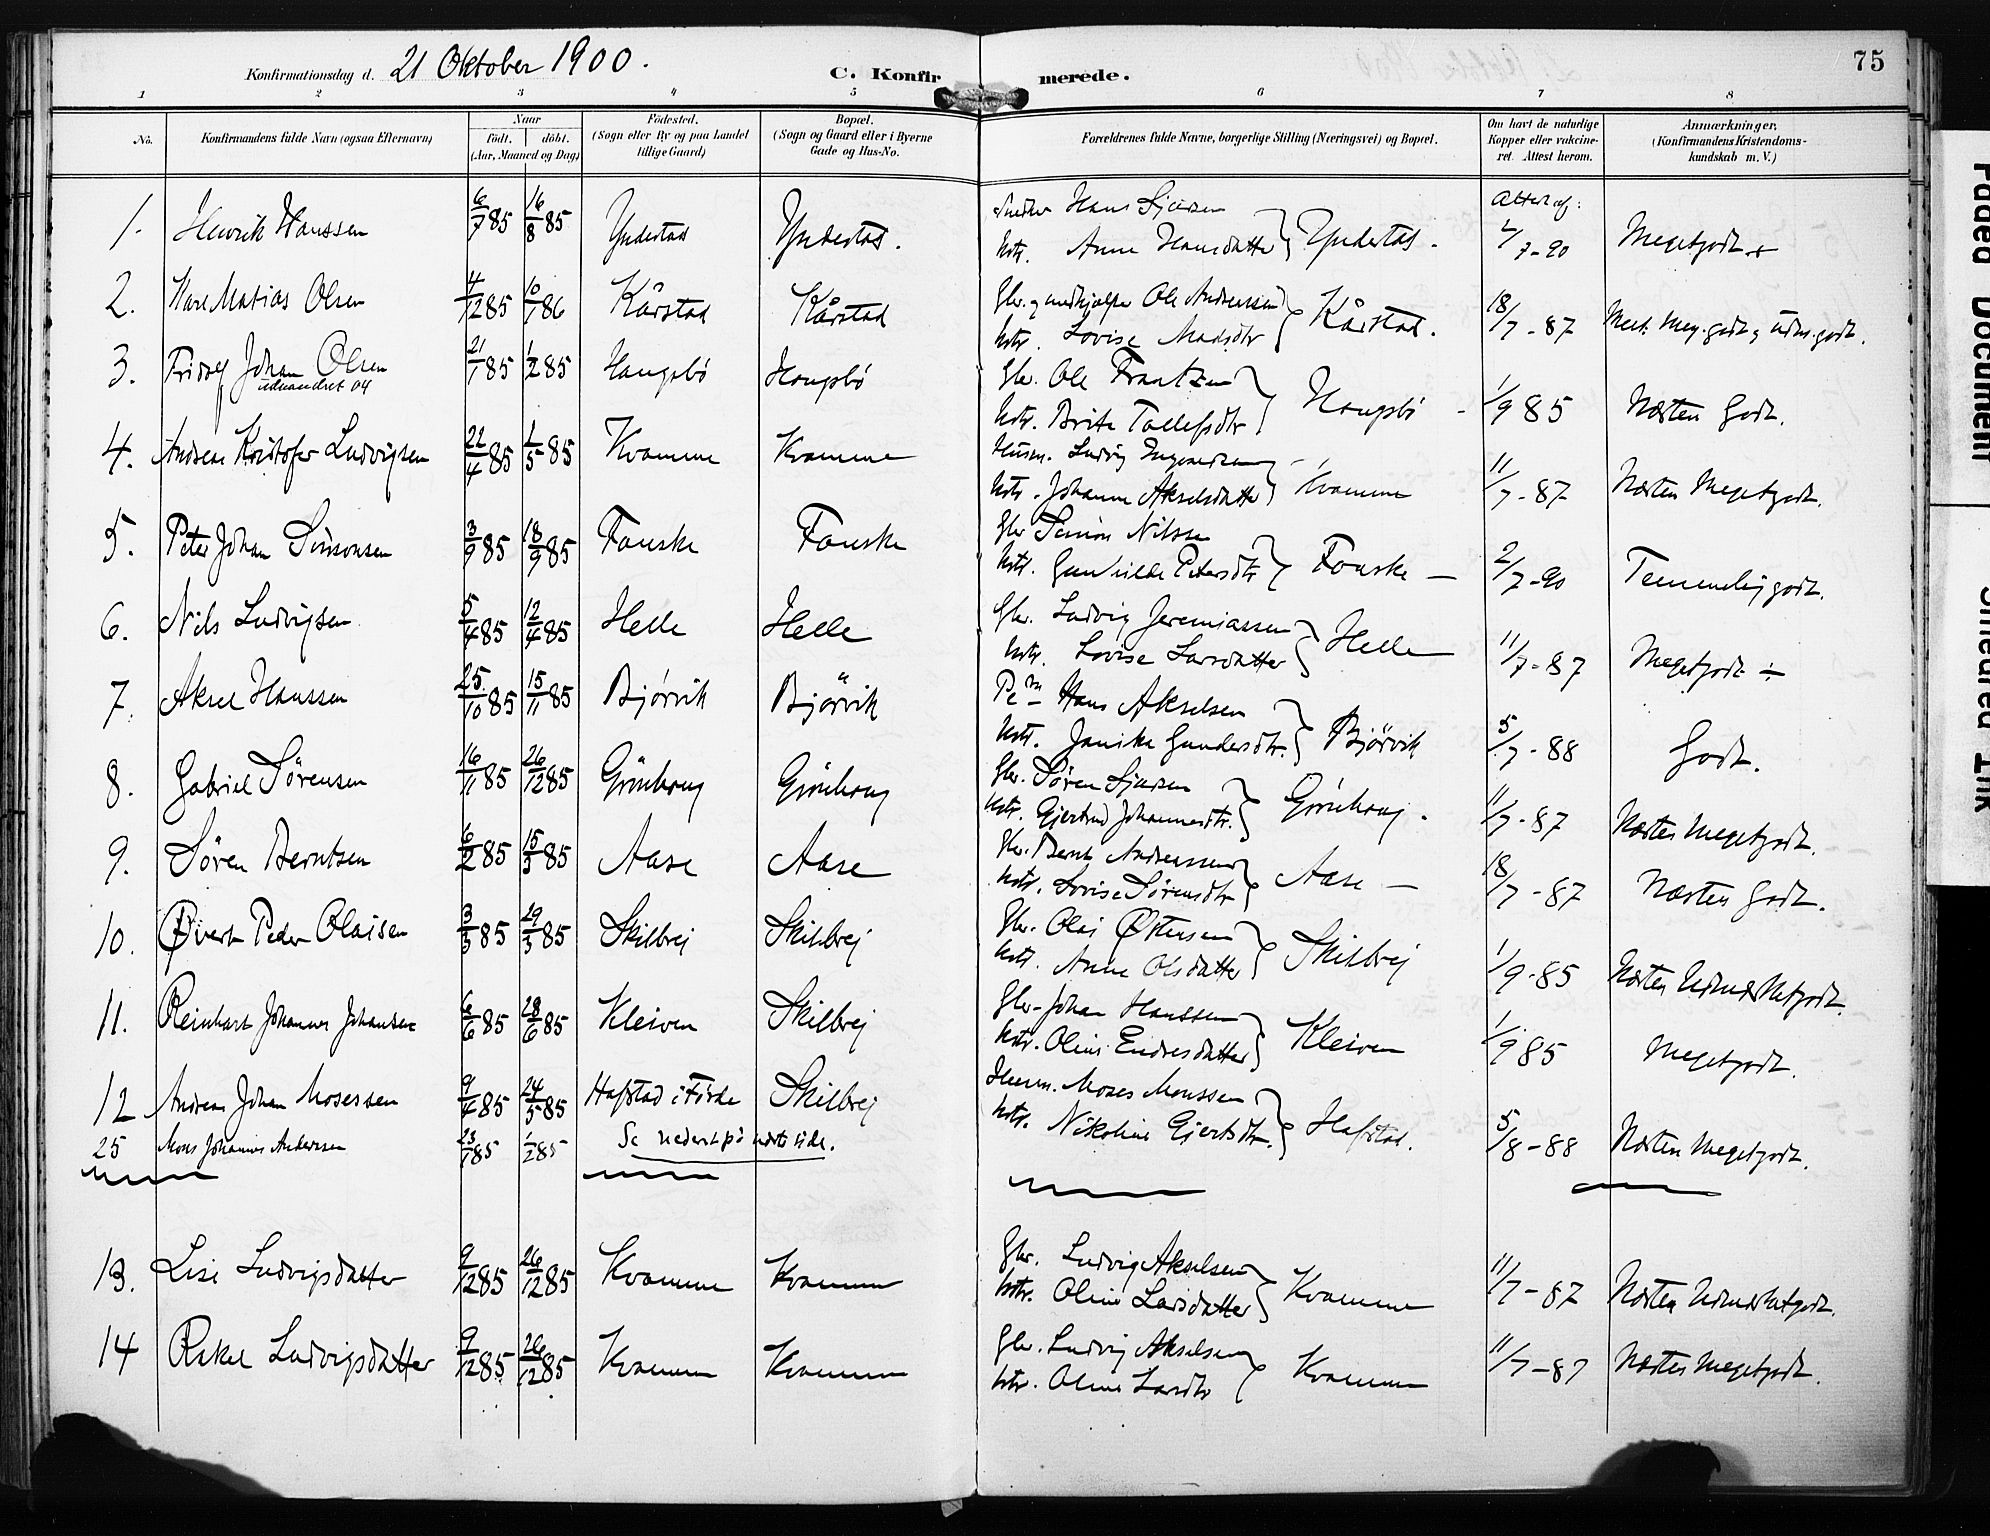 Konfirmationsdag d. 21 Oktober 1900.
C. Konfirmerede.
75
1 2 3 4 5 6 7 8
No.
Konfirmandens fulde Navn (ogsaa Efternavn)
Naar
födt. döbt.
(Aar, Maaned og Dag)
Födested.
(Sogn eller By og paa Landet tillige Gaard)
Bopæl.
(Sogn og Gaard eller i Byerne Gade og Hus-No.
Forældrenes fulde Navne, borgerlige Stilling (Næringsvei) og Bopæl.
Om havt de naturlige Kopper eller vaccineret. Attest herom.
Anmærkninger.
(Konfirmandens Kristendomskundskab m. V.)
1. Henrik Hanssen 6/7 85 16/8 85 Yndestad Yndestad.
Hans Sjursen
Mstr. Anne Hansdatter } Yndestad. Attest af: 2/7-90 Megetgodt +
2. Hans Matias Olsen 4/12 85 10/1 86 Kårstad Kårstad
Gbr. og medhjælper Ole Andreassen
Mstr. Lovise Madsdtr } Kårstad. 18/7-87 Meg. godt
3. Fridolf Johan Olsen 21/1 85 1/2 85 Haugsbö Haugsbö
udvandret 04
Gbr. Ole Frantzen
Mstr. Brite Tollefsdtr } Haugsbö - 1/9 85 Næsten Godt.
4. Andreas Kristofer Ludvigsen 22/4 85 1/5 85 Kvamme Kvamme
Husm. Ludvig
Mstr. Johanne Akselsdatter } Kvamme 11/7-87 Næsten Megetgodt.
5. Peter Johan Simonsen 3/9 85 18/9 85 Fauske Fauske
Gbr Simon Nilssen
Mstr. Gunhilde Petersdtr } Fauske - 2/7-90 Temmelig godt.
6. Nils Ludvigsen 5/4 85 12/4 85 Helle Helle
Gbr. Ludvig Jeremiassen
Mstr. Lovise Larsdatter } Helle 11/7-87 Megetgodt ÷
7. Aksel Hanssen 25/10 85 15/11 85 Bjørvik Björvik
Hans Akselsen
Mstr. Janike Gundersdtr. } Björvik 5/7-88 Godt.
8. Gabriel Sørensen 16/11 85 26/12 85 Grönhaug Grönhaug
Gbr. Søren Sjursen
Mstr. Gjertrud Johannesdtr. } Grönhaug. 11/7-87 Næsten Megetgodt.
9. Søren Berntsen 6/2 85 15/3 85 Aase Aase
Gbr. Bernt Andreassen
Mstr. Lovise Sørensdtr } Aase - 18/7-87 Næsten Godt.
10. Øivert Peder Olaisen 3/3 85 29/3 85 Skilbrej Skilbrej
Gbr. Olai Østensen
Mstr. Anne Olsdatter } Skilbrej 1/9-85 Næsten Udmærketgodt.
11. Reinhart Johannes Johansen 6/6 85 28/6 85 Kleiven Skilbrej
Gbr- Johan Hanssen
Mstr. Oline Endresdatter } Kleiven 1/9 85 Megetgodt.
12 Andreas Johan Mosessen 9/4 85 24/5 85 Hafstad i Førde Skilbrej
Husm. Moses Monssen
Mstr. Nikoline Gjertsdtr. } Hafstad. 5/8-88 Næsten Megetgodt.
25 Mons Johannes Anderssen 23/1 85 1/2 85 Se nederst på næste side.
13. Lise Ludvigsdatter 9/12 85 26/12 85 Kvamme Kvamme
Gbr. Ludvig Akselsen
Mstr. Oline Larsdatter } Kvamme 11/7-87 Næsten Udmærketgodt.
14 Rakel Ludvigsdatter 9/12 85 26/12 85 Kvamme Kvamme
Gbr. Ludvig Akselsen
Mstr. Oline Larsdtr } Kvamme 11/7-87 Næsten Megetgodt.
Faded Document
Smeared Ink